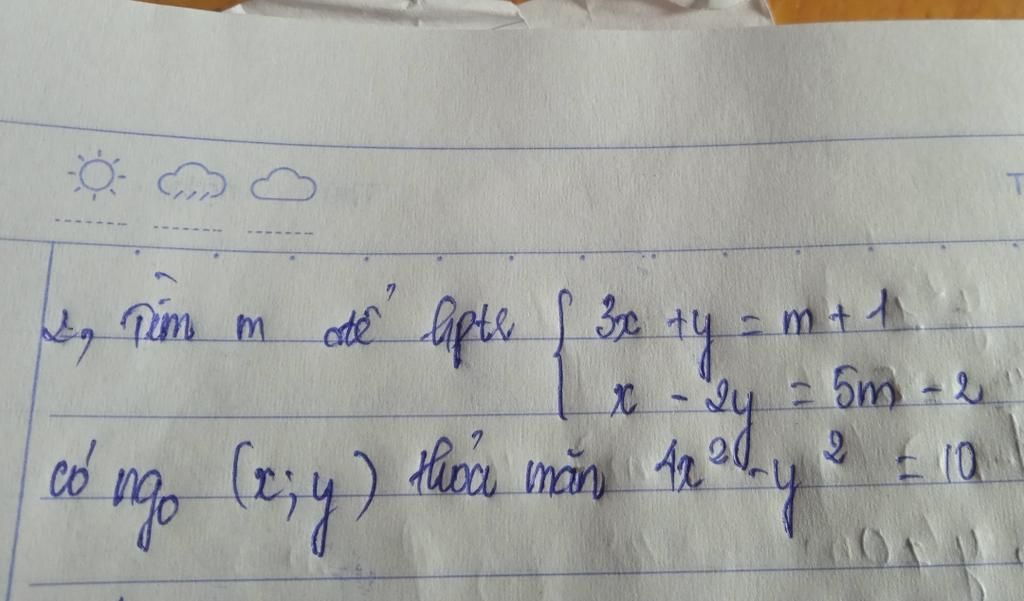 2, Tìm m để hpts { 3x + y = m + 1
x - 2y = 5m - 2
có ngo (x; y) thỏa mãn 4x² - y² = 10